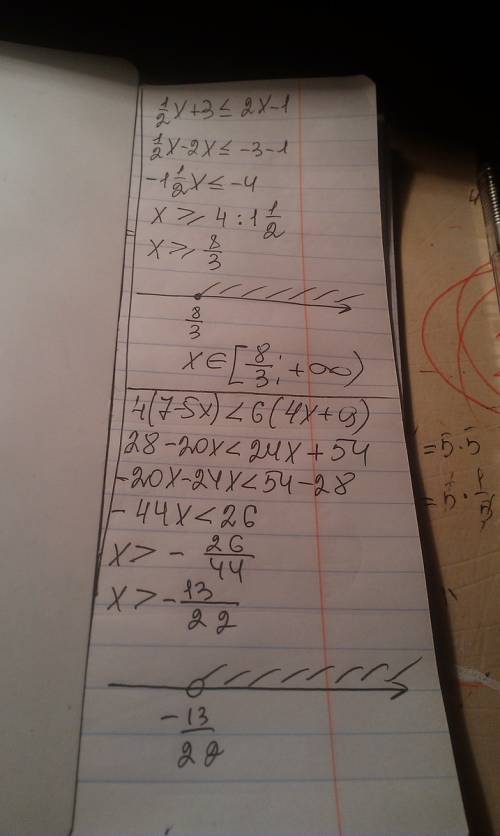 1/2 x+3 ≤ 2x-1
1/2 x-2x ≤ -3-1
-1 1/2 x ≤ -4
x ≥ 4 : 1 1/2
x ≥ 8/3
8/3
x ∈ [8/3; +∞)
4(7-5x) < 6(4x+9)
28-20x < 24x+54
-20x-24x < 54-28
-44x < 26
x > - 26/44
x > - 13/22
-13/22
= 5·5